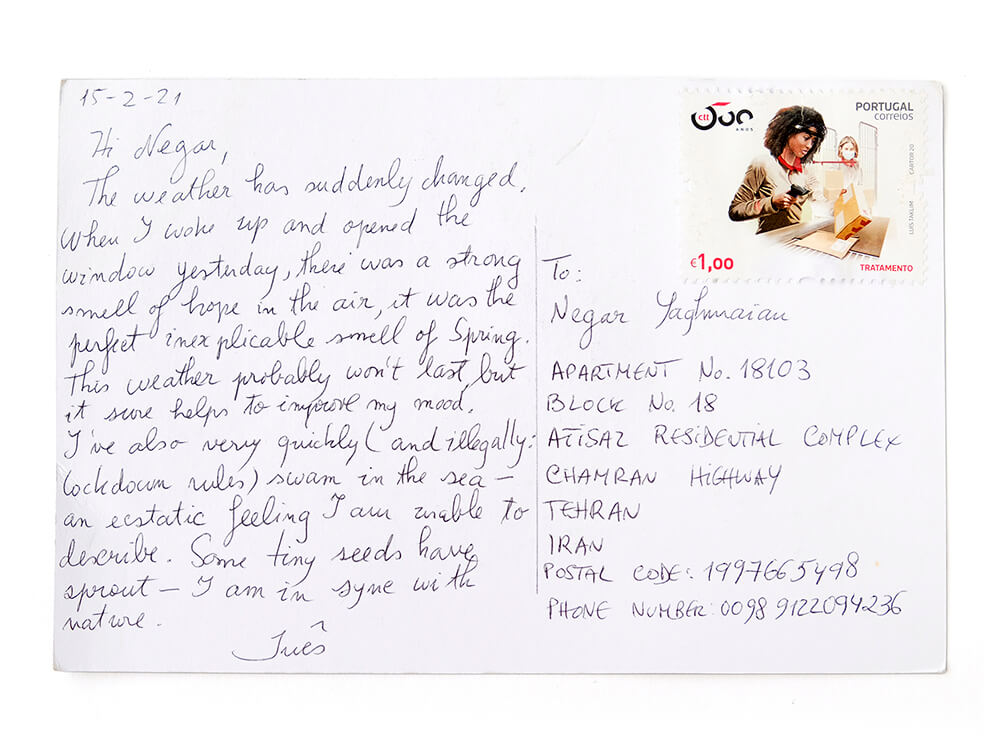 15-2-21
Hi Negar,
The weather has suddenly changed.
When I woke up and opened the
window yesterday, there was a strong
smell of hope in the air, it was the
perfect inexplicable smell of Spring.
This weather probably won't last, but
it sure helps to improve my mood.
I've also very quickly (and illegally:
lockdown rules) swam in the sea –
an ecstatic feeling I am unable to
describe. Some tiny seeds have
sprout – I am in sync with
nature.
Inês
ctt
500
ANOS
PORTUGAL
correios
LUIS TAKLIM
CARTOR 20
€1,00
TRATAMENTO
To:
Negar Yaghmaian
APARTMENT No. 18103
BLOCK No. 18
ATISAZ RESIDENTIAL COMPLEX
CHAMRAN HIGHWAY
TEHRAN
IRAN
POSTAL CODE: 1997665498
PHONE NUMBER: 0098 9122094236